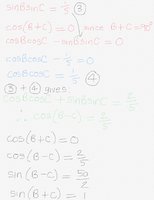 sinBsinC = 1/5 ③
cos(B+C) = 0 since B+C=90°
cosBcosC - sinBsinC = 0
cosBcosC - 1/5 = 0
cosBcosC = 1/5 ④
③ + ④ gives
cosBcosC + sinBsinC = 2/5
∴ cos(B-C) = 2/5
cos(B+C) = 0
cos(B-C) = 2/5
sin(B-C) =
sin(B+C) = 1